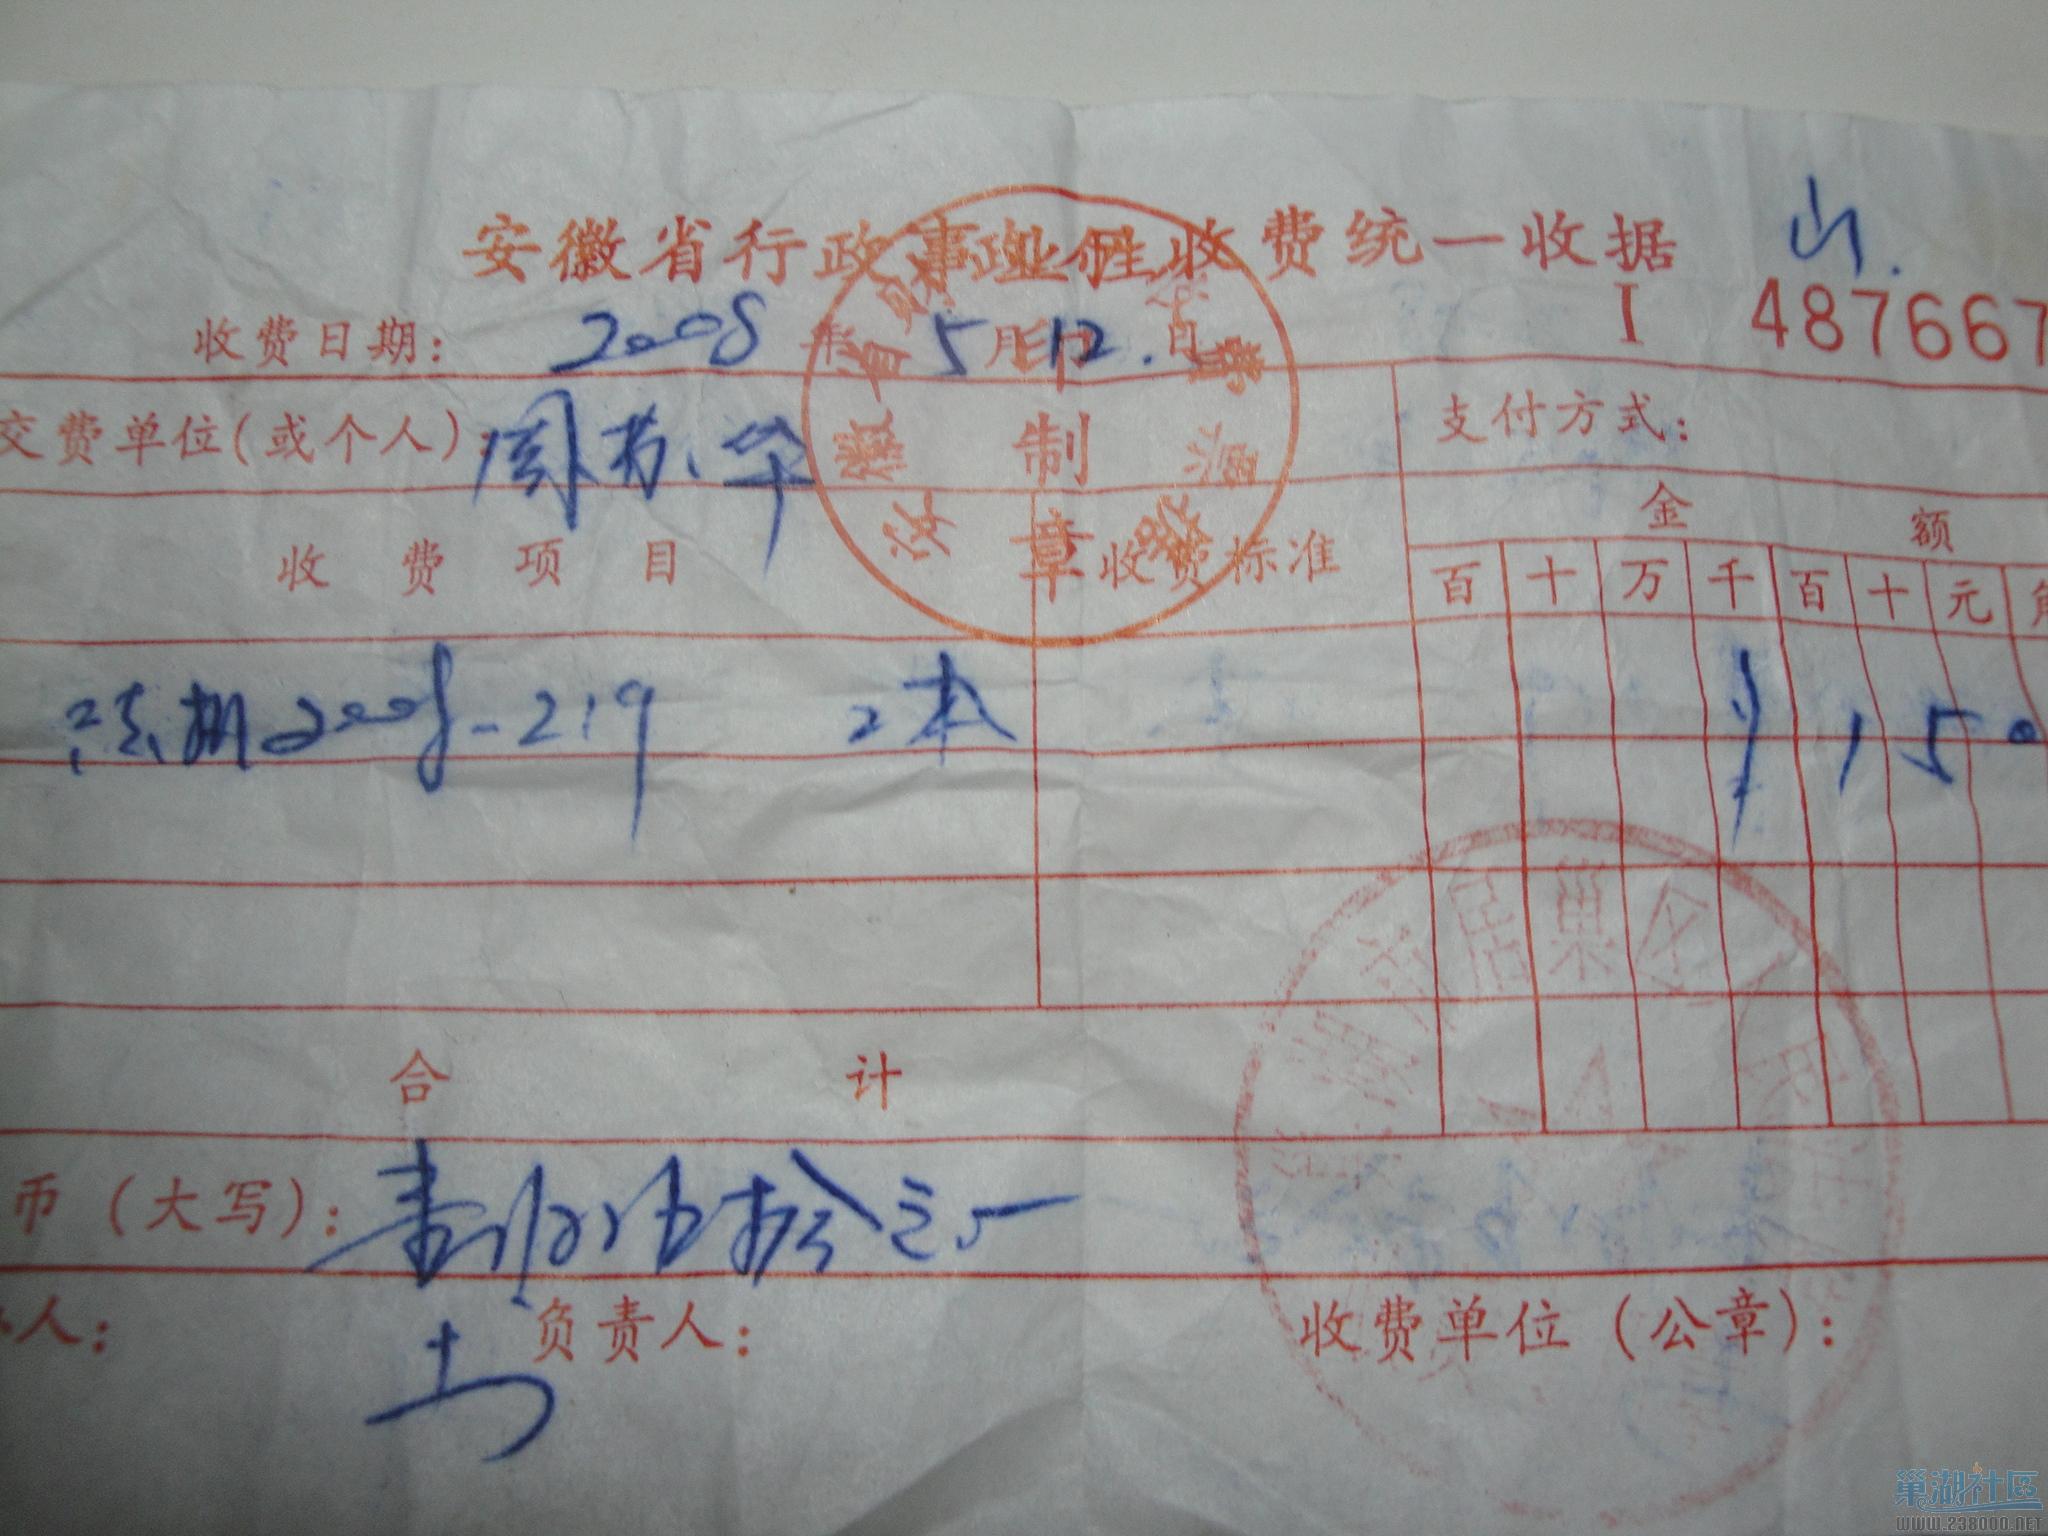 安徽省行政事业性收费统一收据 山.
I 487667
收费日期: 2008 年 5 月 12 日
交费单位(或个人): 周 华 支付方式:
收费项目 收费标准 金额
百 十 万 千 百 十 元 角
2008-219 2本 150
合计
币(大写): 壹佰伍拾元
人: 负责人: 收费单位(公章):
制
章
居巢区
巢湖社区
WWW.238000.NET